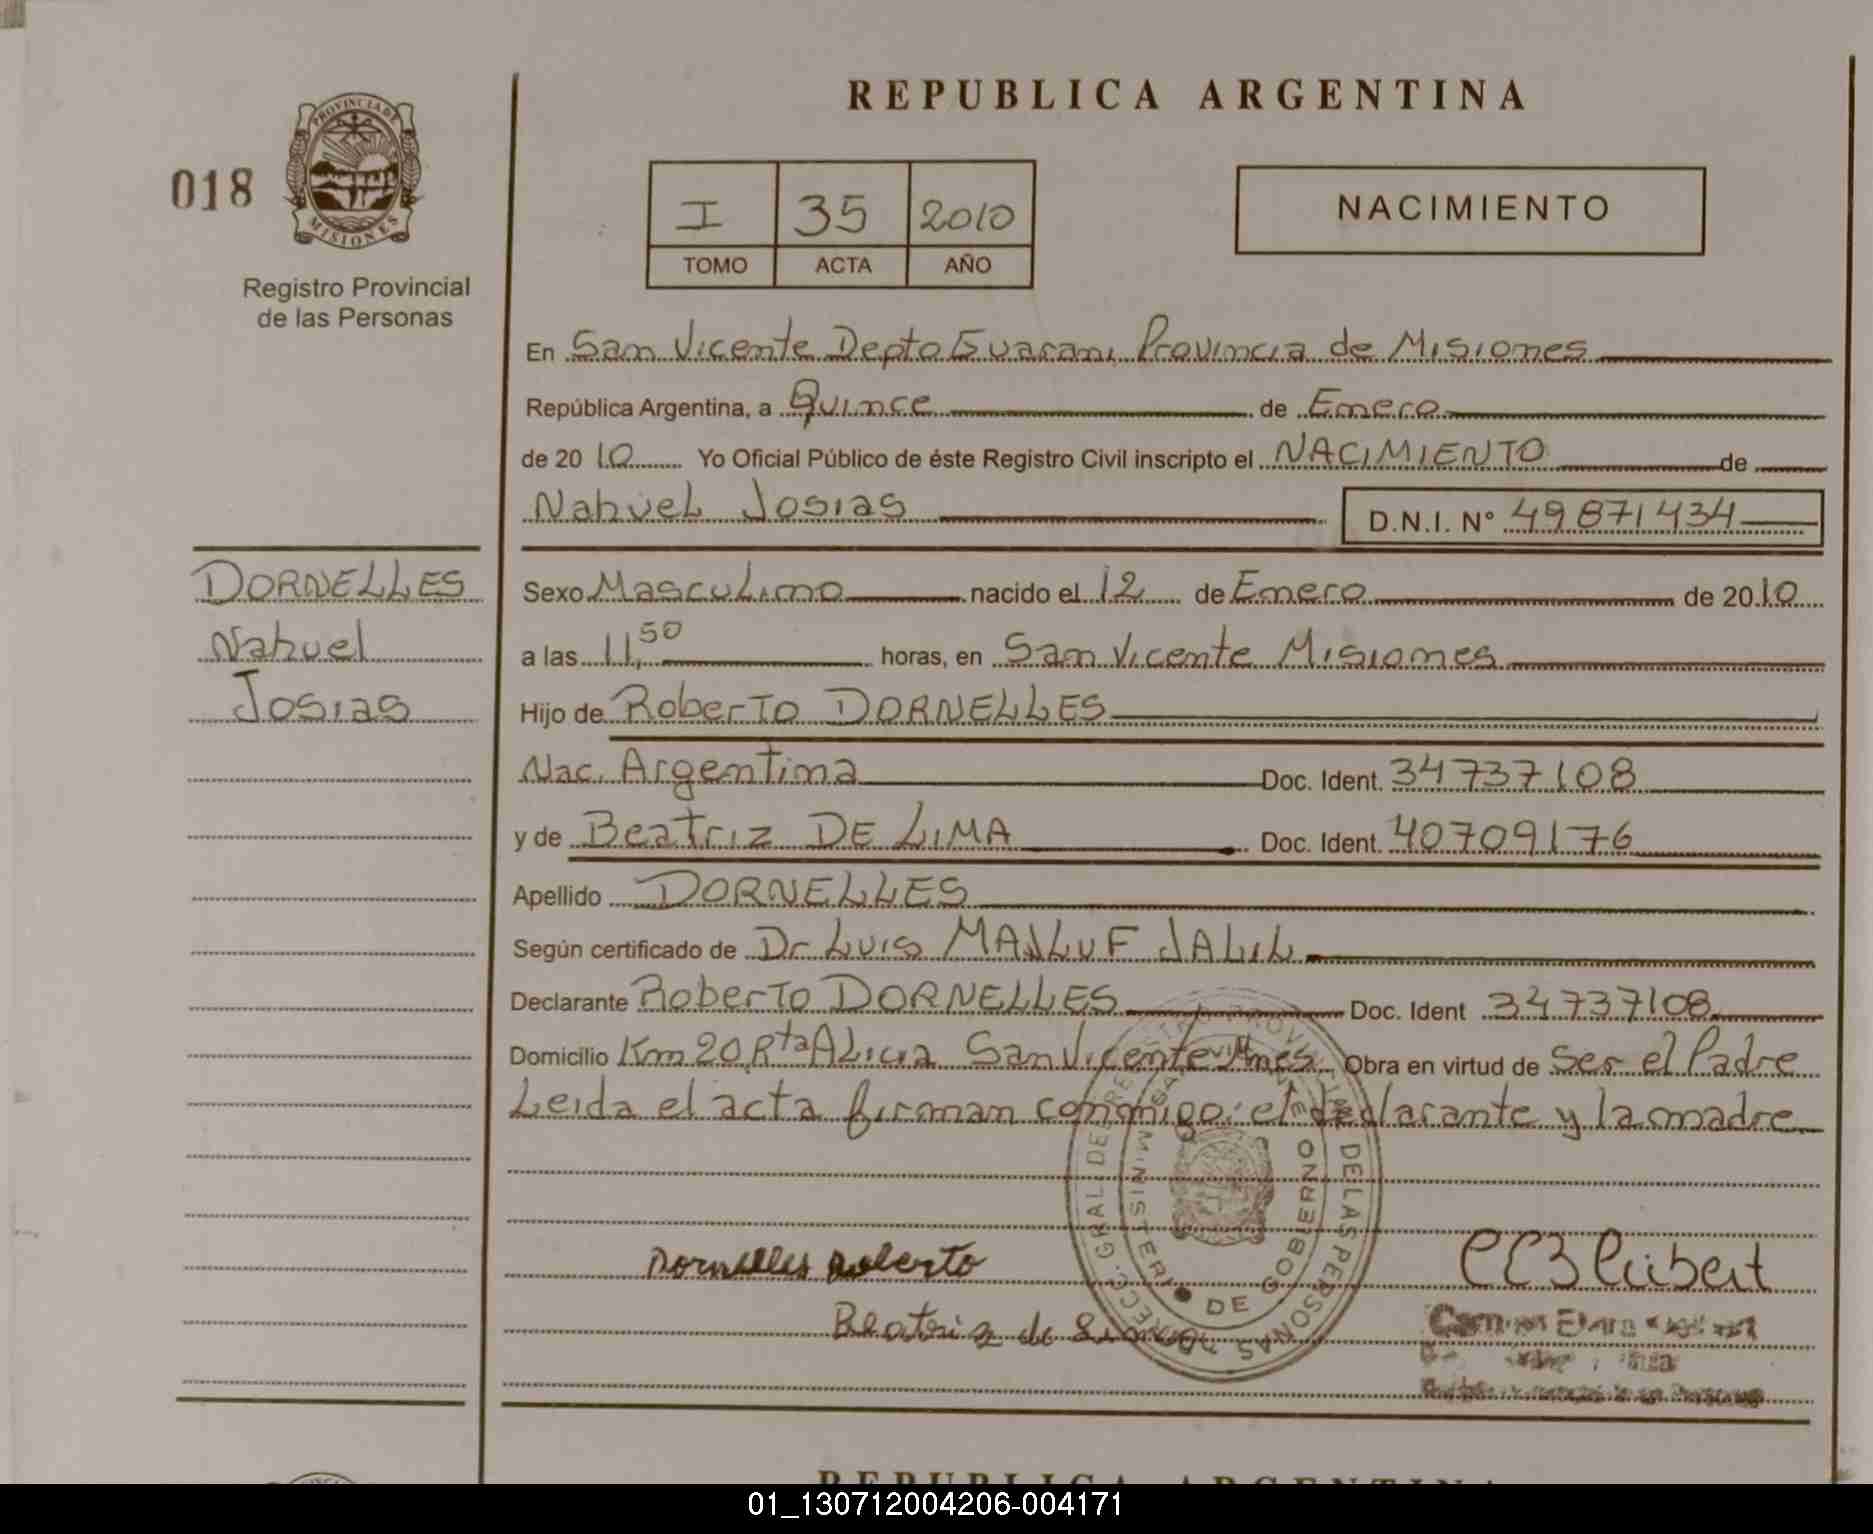 REPUBLICA ARGENTINA
018
PROVINCIA DE
MISIONES
Registro Provincial
de las Personas
I 35 2010
TOMO ACTA AÑO
NACIMIENTO
En San Vicente Depto Guarani Provincia de Misiones
República Argentina, a Quince de Enero
de 2010 Yo Oficial Público de éste Registro Civil inscripto el NACIMIENTO de
Nahuel Josias D.N.I. N° 49871434
DORNELLES
Nahuel
Josias
Sexo Masculino nacido el 12 de Enero de 2010
a las 11,50 horas, en San Vicente Misiones
Hijo de Roberto DORNELLES
Nac. Argentina Doc. Ident. 34737108
y de Beatriz DE LIMA Doc. Ident. 40709176
Apellido DORNELLES
Según certificado de Dr Luis MAJLUF JALIL
Declarante Roberto DORNELLES Doc. Ident 34737108
Domicilio Km 20 Rta Alicia San Vicente Mnes Obra en virtud de Ser el Padre
Leida el acta firman conmigo: el declarante y la madre
DE LAS PERSONAS
DE GOBIERNO
Dornelles Roberto
Beatriz de Lima
REPUBLICA ARGENTINA
01_130712004206-004171